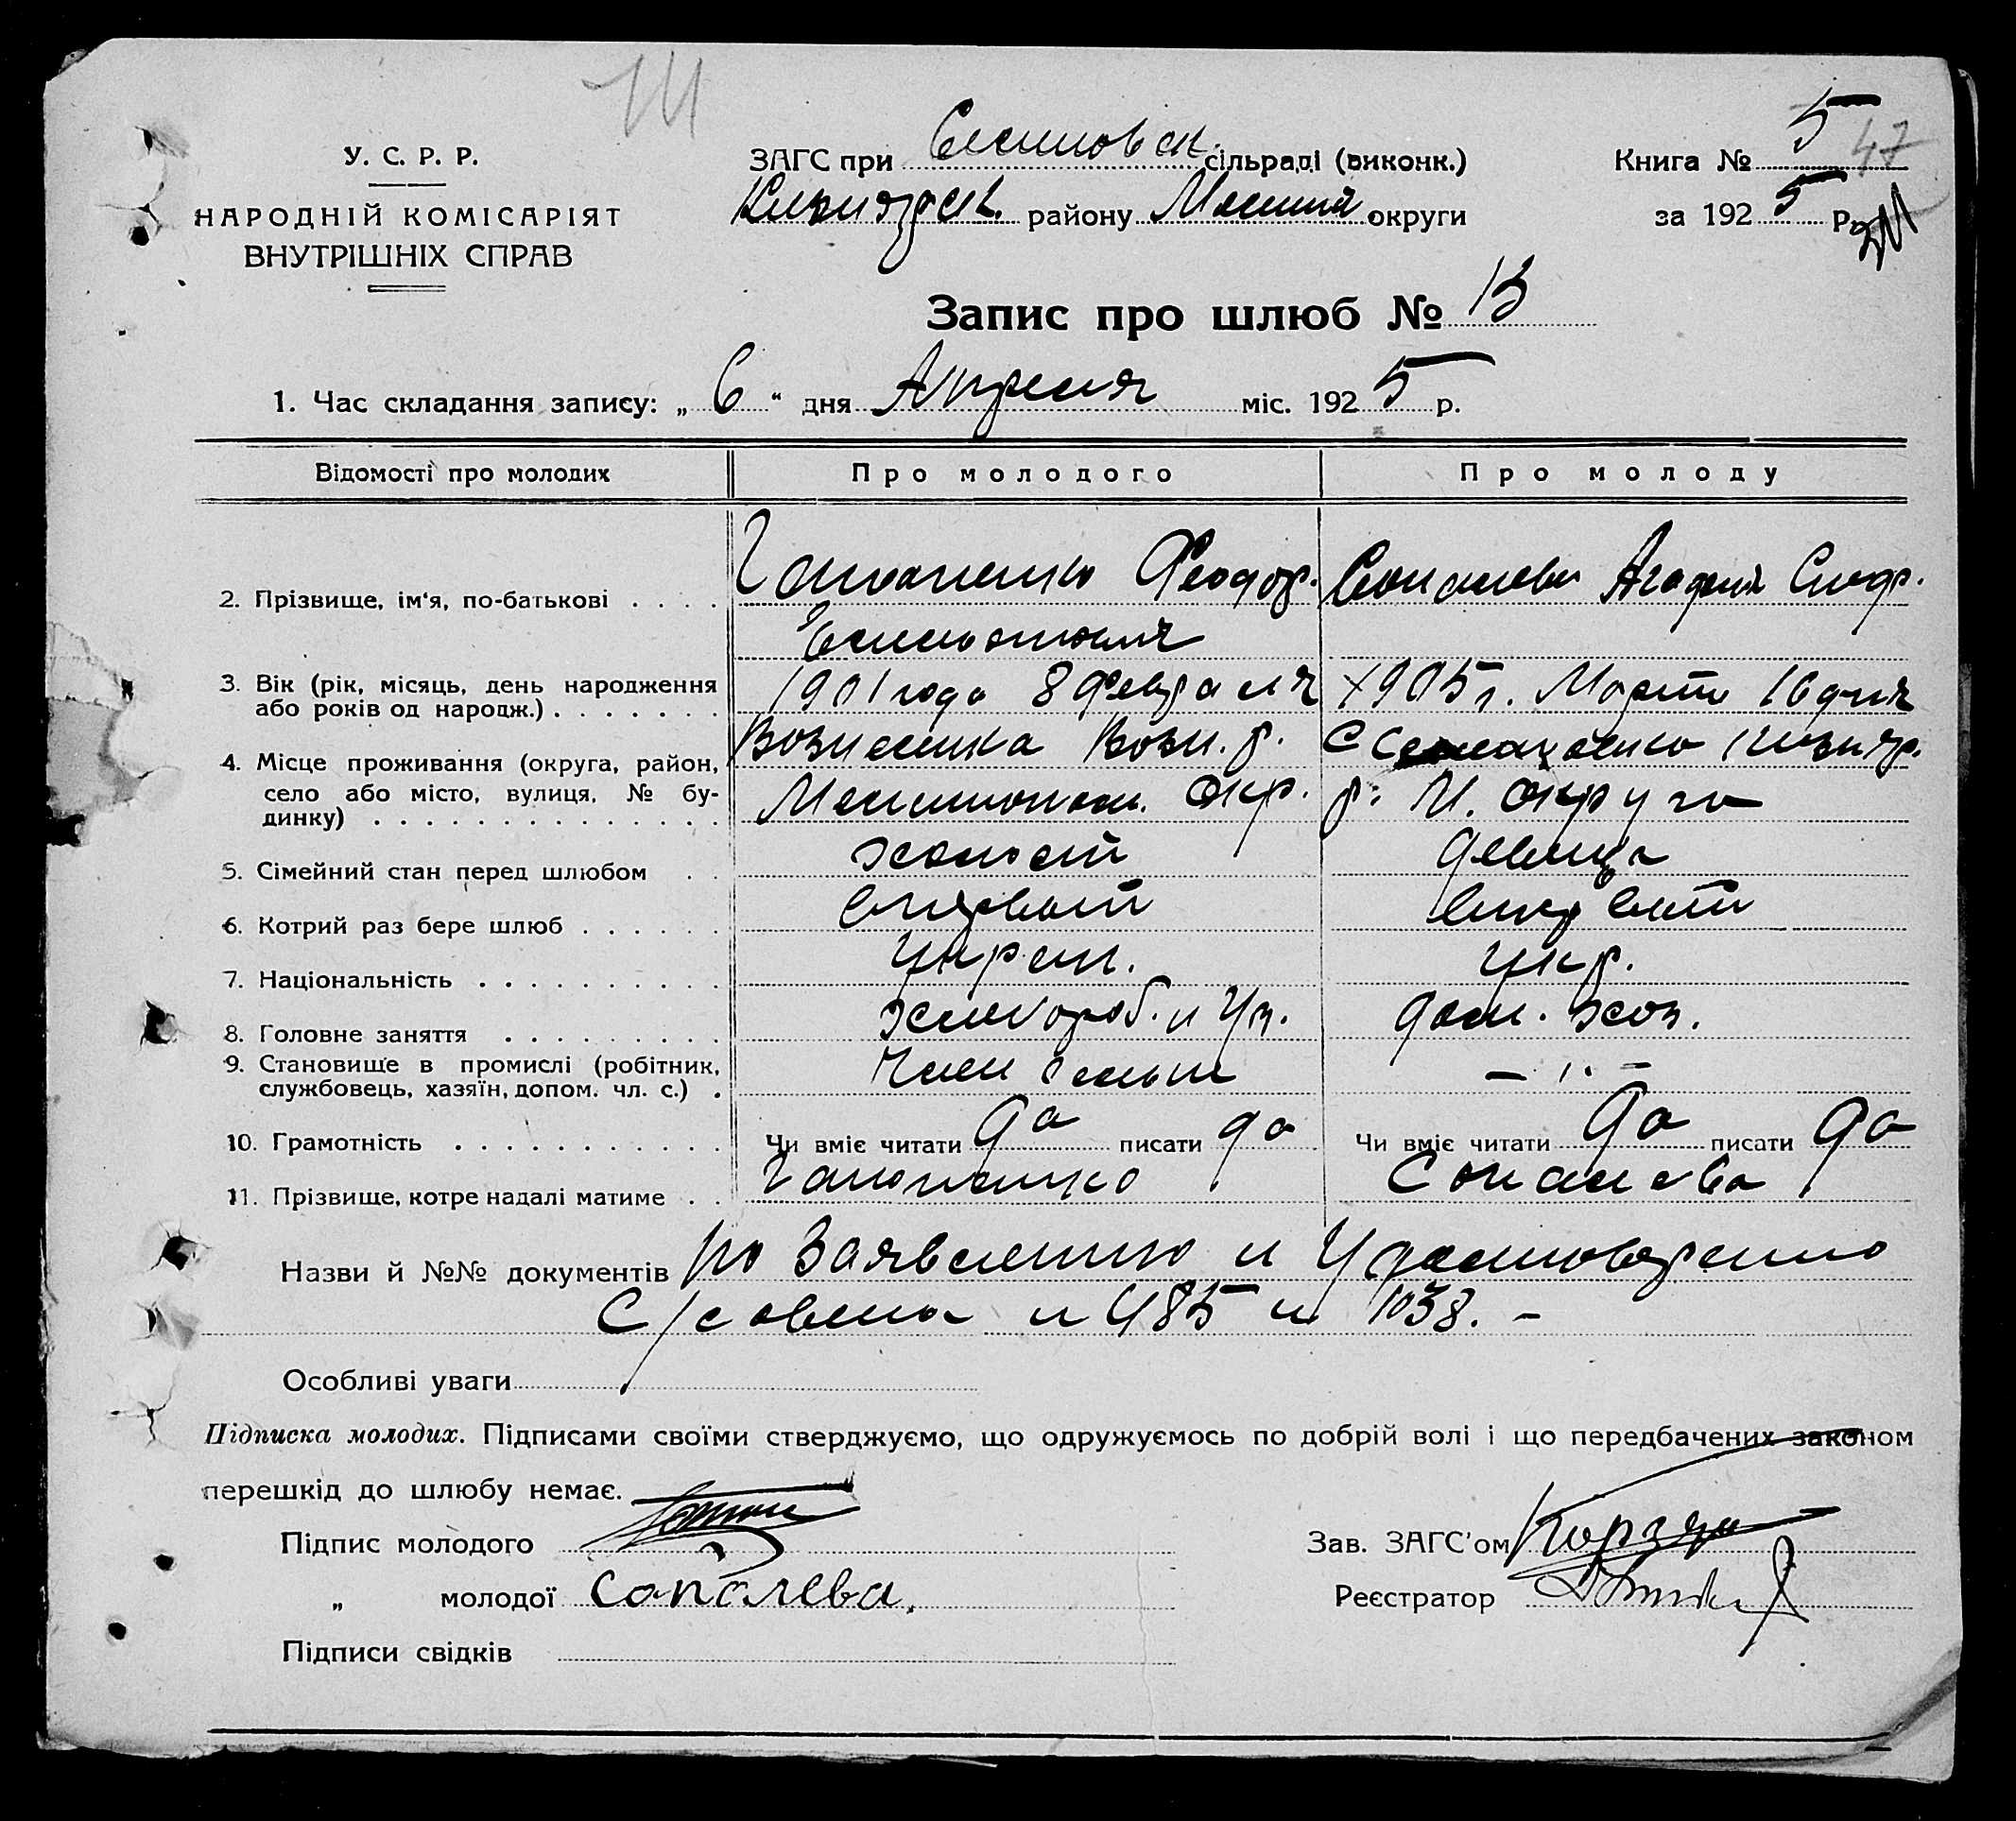 У. С. Р. Р.
НАРОДНІЙ КОМІСАРІЯТ
ВНУТРІШНІХ СПРАВ
ЗАГС при сільраді (виконк.)
району округи
Книга № 5 47
за 1925 р.
Запис про шлюб № 13
1. Час складання запису: „ 6 “ дня Апреля міс. 1925 р.
Відомості про молодих Про молодого Про молоду
2. Прізвище, ім‘я, по-батькові . . . . Феодор. Агафия
3. Вік (рік, місяць, день народження
або років од народж.) . . . . . . . 1901 года 8 Февраля 1905 г. Марта 16 дня
4. Місце проживання (округа, район,
село або місто, вулиця, № бу-
динку) . . . . . . . . . . . . . . Окр. р. М. округа
5. Сімейний стан перед шлюбом . . холост девица
6. Котрий раз бере шлюб . . . . . . впервой впервой
7. Національність . . . . . . . . . . Украин. Укр.
8. Головне заняття . . . . . . . . . хлебороб. дом. хоз.
9. Становище в промислі (робітник,
службовець, хазяїн, допом. чл. с.) . Член семьи — „ —
10. Грамотність . . . . . . . . . . . Чи вміє читати да писати да Чи вміє читати да писати да
11. Прізвище, котре надалі матиме . . Сопалева
Назви й №№ документів по Заявлению и Удостоверению
С/совета и 485 и 1038. —
Особливі уваги
Підписка молодих. Підписами своїми стверджуємо, що одружуємось по добрій волі і що передбачених законом
перешкід до шлюбу немає.
Підпис молодого
„ молодої Сопалева.
Підписи свідків
Зав. ЗАГС'ом
Реєстратор